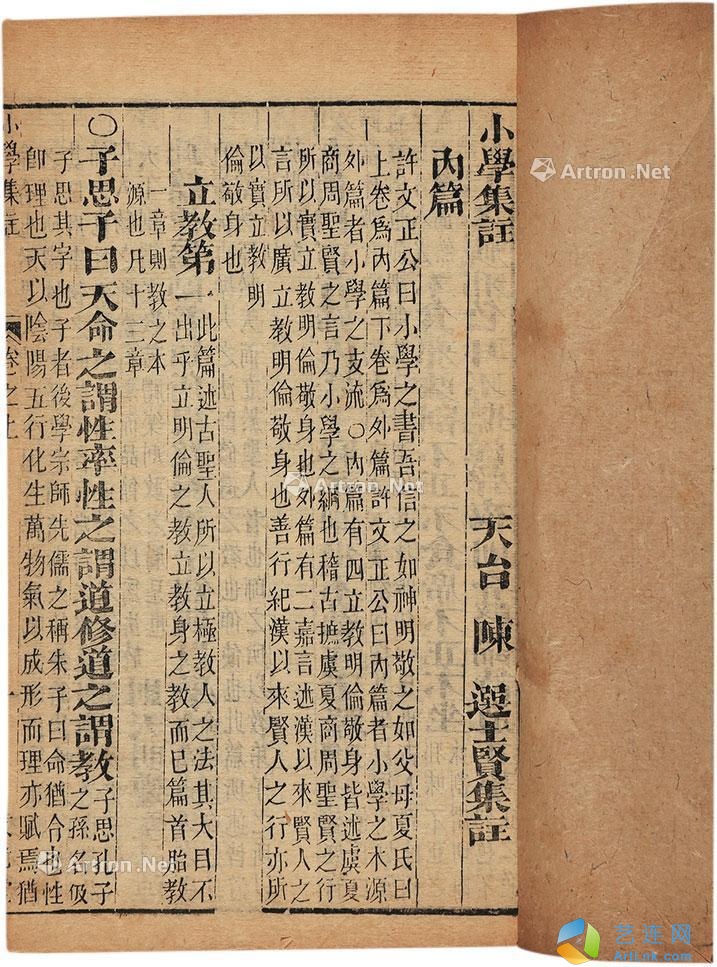 小學集註 天台 陳 選士賢集註
內篇
許文正公曰小學之書吾信之如神明敬之如父母夏氏曰
上卷爲內篇下卷爲外篇許文正公曰內篇者小學之本源
外篇者小學之支流○內篇有四立教明倫敬身皆述虞夏
商周聖賢之言乃小學之綱也稽古摭虞夏商周聖賢之行
所以實立教明倫敬身也外篇有二嘉言述漢以來賢人之
言所以廣立教明倫敬身也善行紀漢以來賢人之行亦所
以實立教明
倫敬身也
立教第一
此篇述古聖人所以立極教人之法其大目不
出乎立明倫之教立教身之教而已篇首胎教
一章則教之本
源也凡十三章
○子思子曰天命之謂性率性之謂道修道之謂教
子思孔子
之孫名伋
子思其字也子者後學宗師先儒之稱朱子曰命猶令也性
卽理也天以陰陽五行化生萬物氣以成形而理亦賦焉猶
小學集註 卷之上 一
Artron.Net
Artron.Net
Artron.Net
Artron.Net
艺迋网
ArtLink.Com